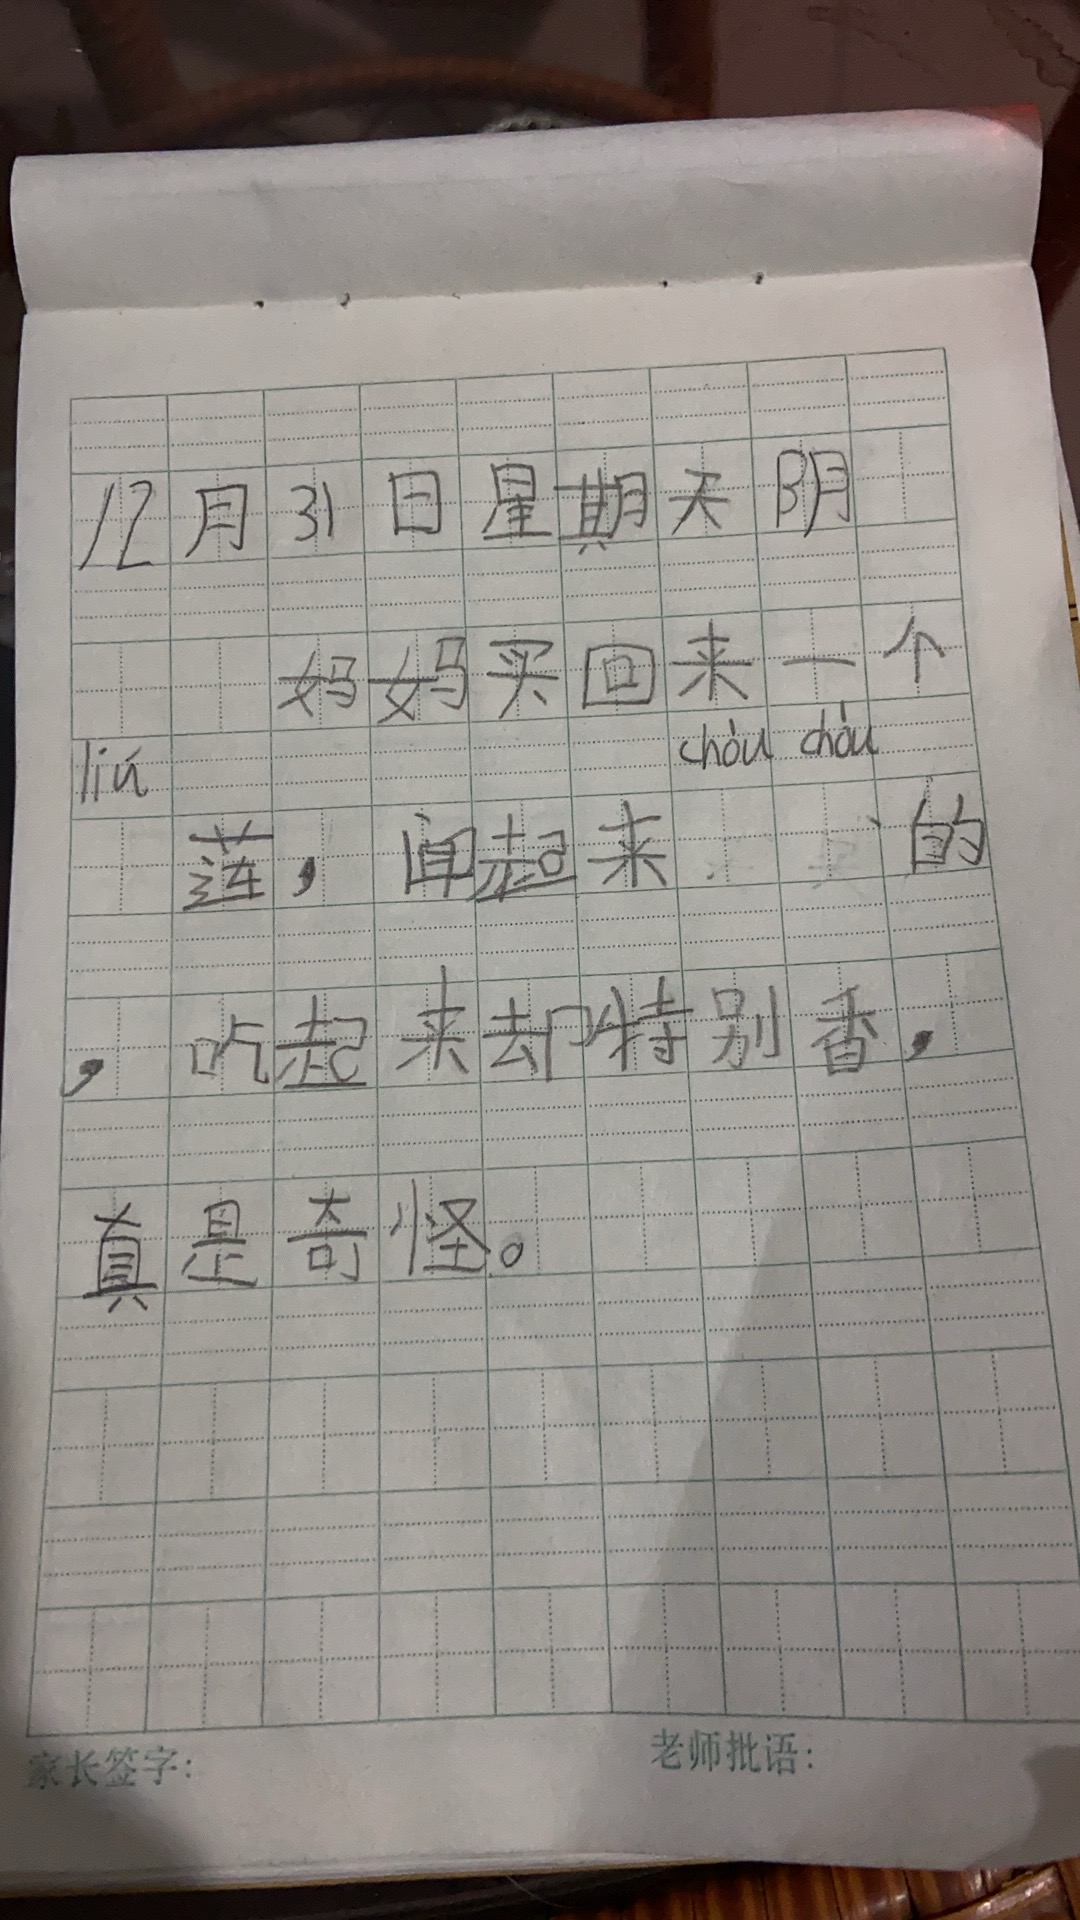 12月31日星期天阴
妈妈买回来一个
liú chòu chòu
莲，闻起来 的
，吃起来却特别香，
真是奇怪。
家长签字： 老师批语：